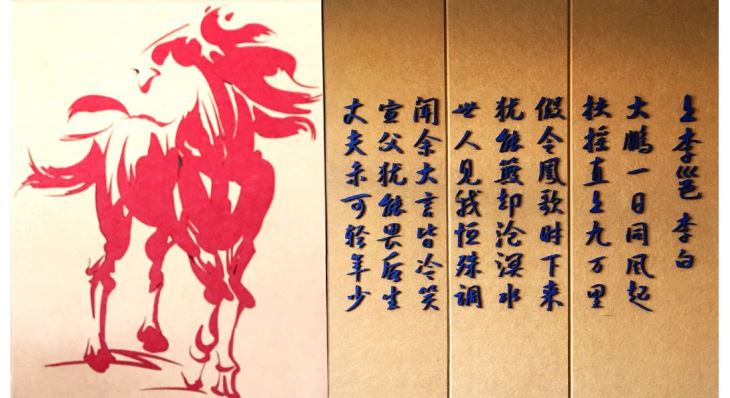 上李邕 李白
大鹏一日同风起
扶摇直上九万里
假令风歇时下来
犹能簸却沧溟水
世人见我恒殊调
闻余大言皆冷笑
宣父犹能畏后生
丈夫未可轻年少